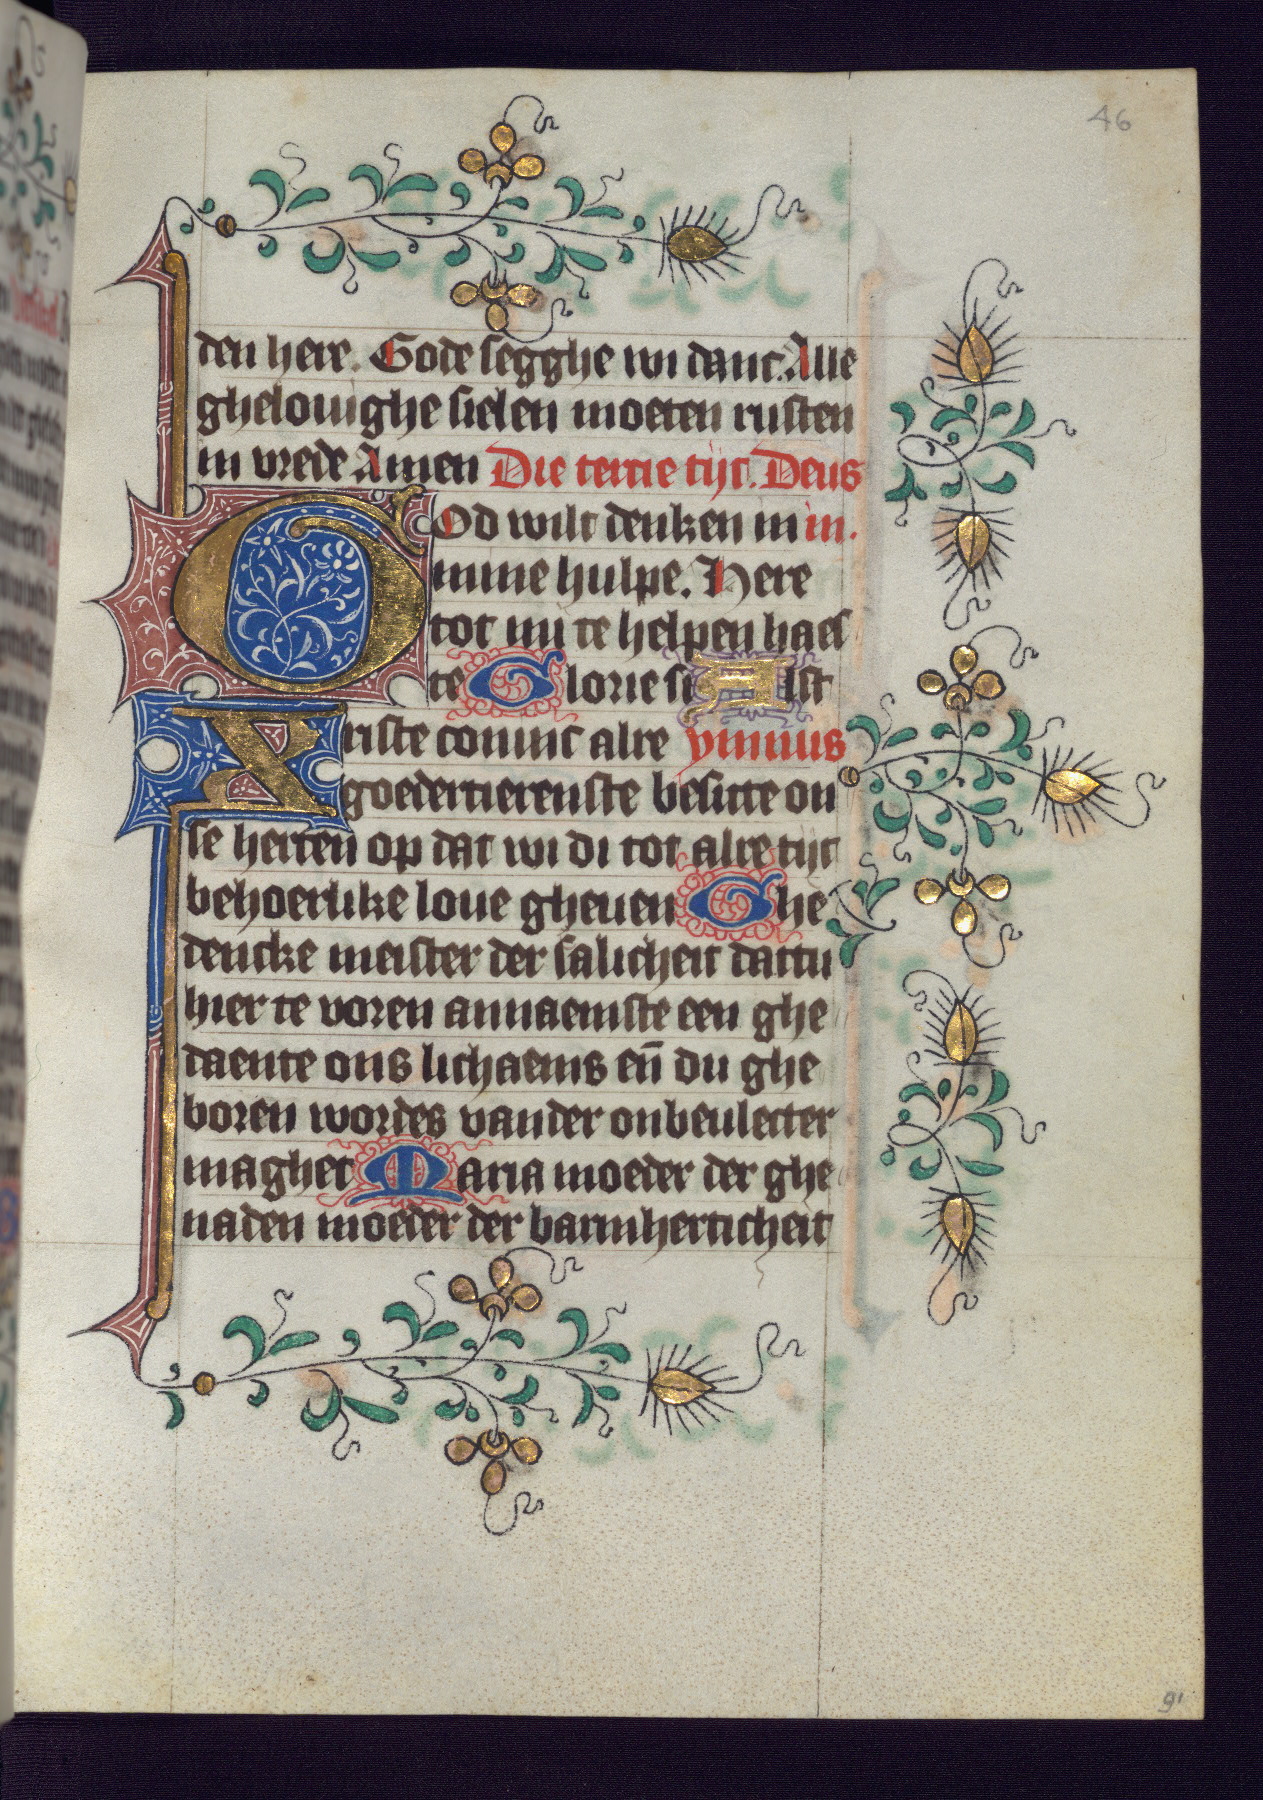 46
den here. Gode segghe wi danc. Alle
ghelouighe sielen moeten rusten
in vrede Amen Die tertie tijt. Deus
GOd wilt denken in in.
mine hulpe. Here
tot mi te helpen haes
te Glorie si Alst
Xriste coninc alre ymnus
goedertierenste besitte on
se herten op dat wi di tot alre tijt
behoerlike loue gheuen Ghe
dencke meister der salicheit dattu
hier te voren annaemste een ghe
daente ons lichaems en̄ du ghe
boren wordes vander onbeulecter
maghet Maria moeder der ghe
naden moeder der barmherticheit